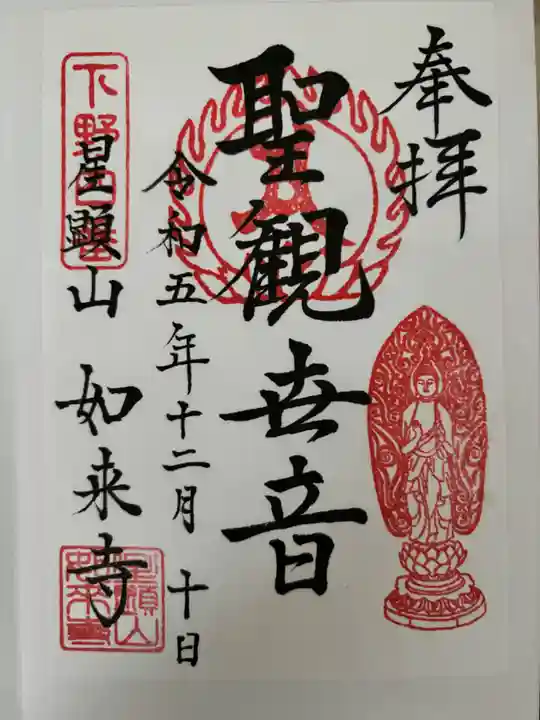 奉拝
聖観世音
令和五年十二月十日
星顕山 如来寺
下野